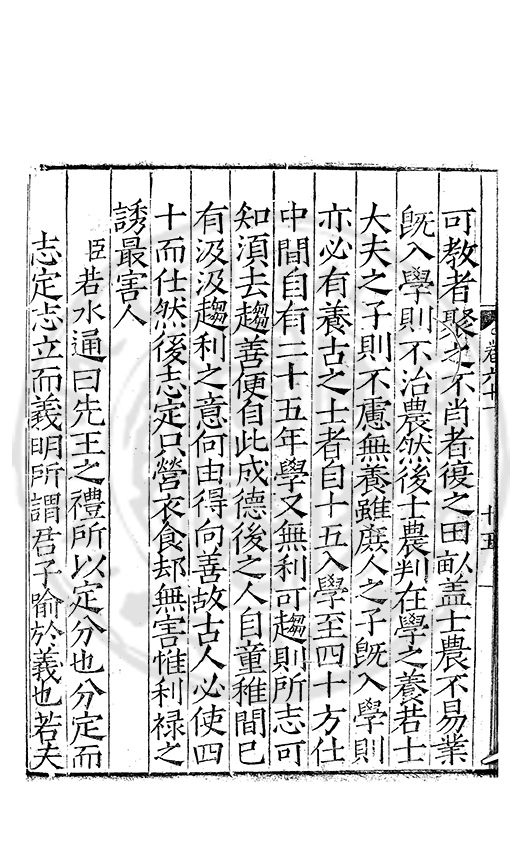 可教者聚之不肖者復之田畝盖士農不易業
旣入學則不治農然後士農判在學之養若士
大夫之子則不慮無養雖庻人之子旣入學則
亦必有養古之士者自十五入學至四十方仕
中間自有二十五年學又無利可趨則所志可
知湏去趨善便自此成德後之人自童稚間已
有汲汲趨利之意何由得向善故古人必使四
十而仕然後志定只營衣食却無害惟利禄之
誘最害人
臣若水通曰先王之禮所以定分也分定而
志定志立而義明所謂君子喻於義也若夫
卷六十一
十五